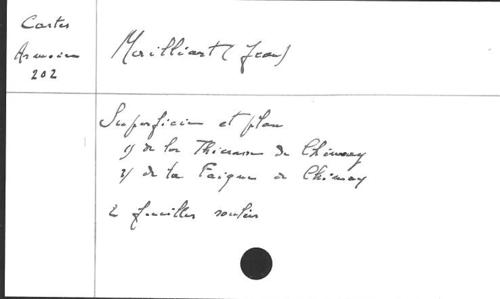 Cartes
Armoire
202
Merilliart (Jean)
Superficie et plan
1) de la Thiérasse de Chimay
2) de la Faigne de Chimay
2 feuilles roulées